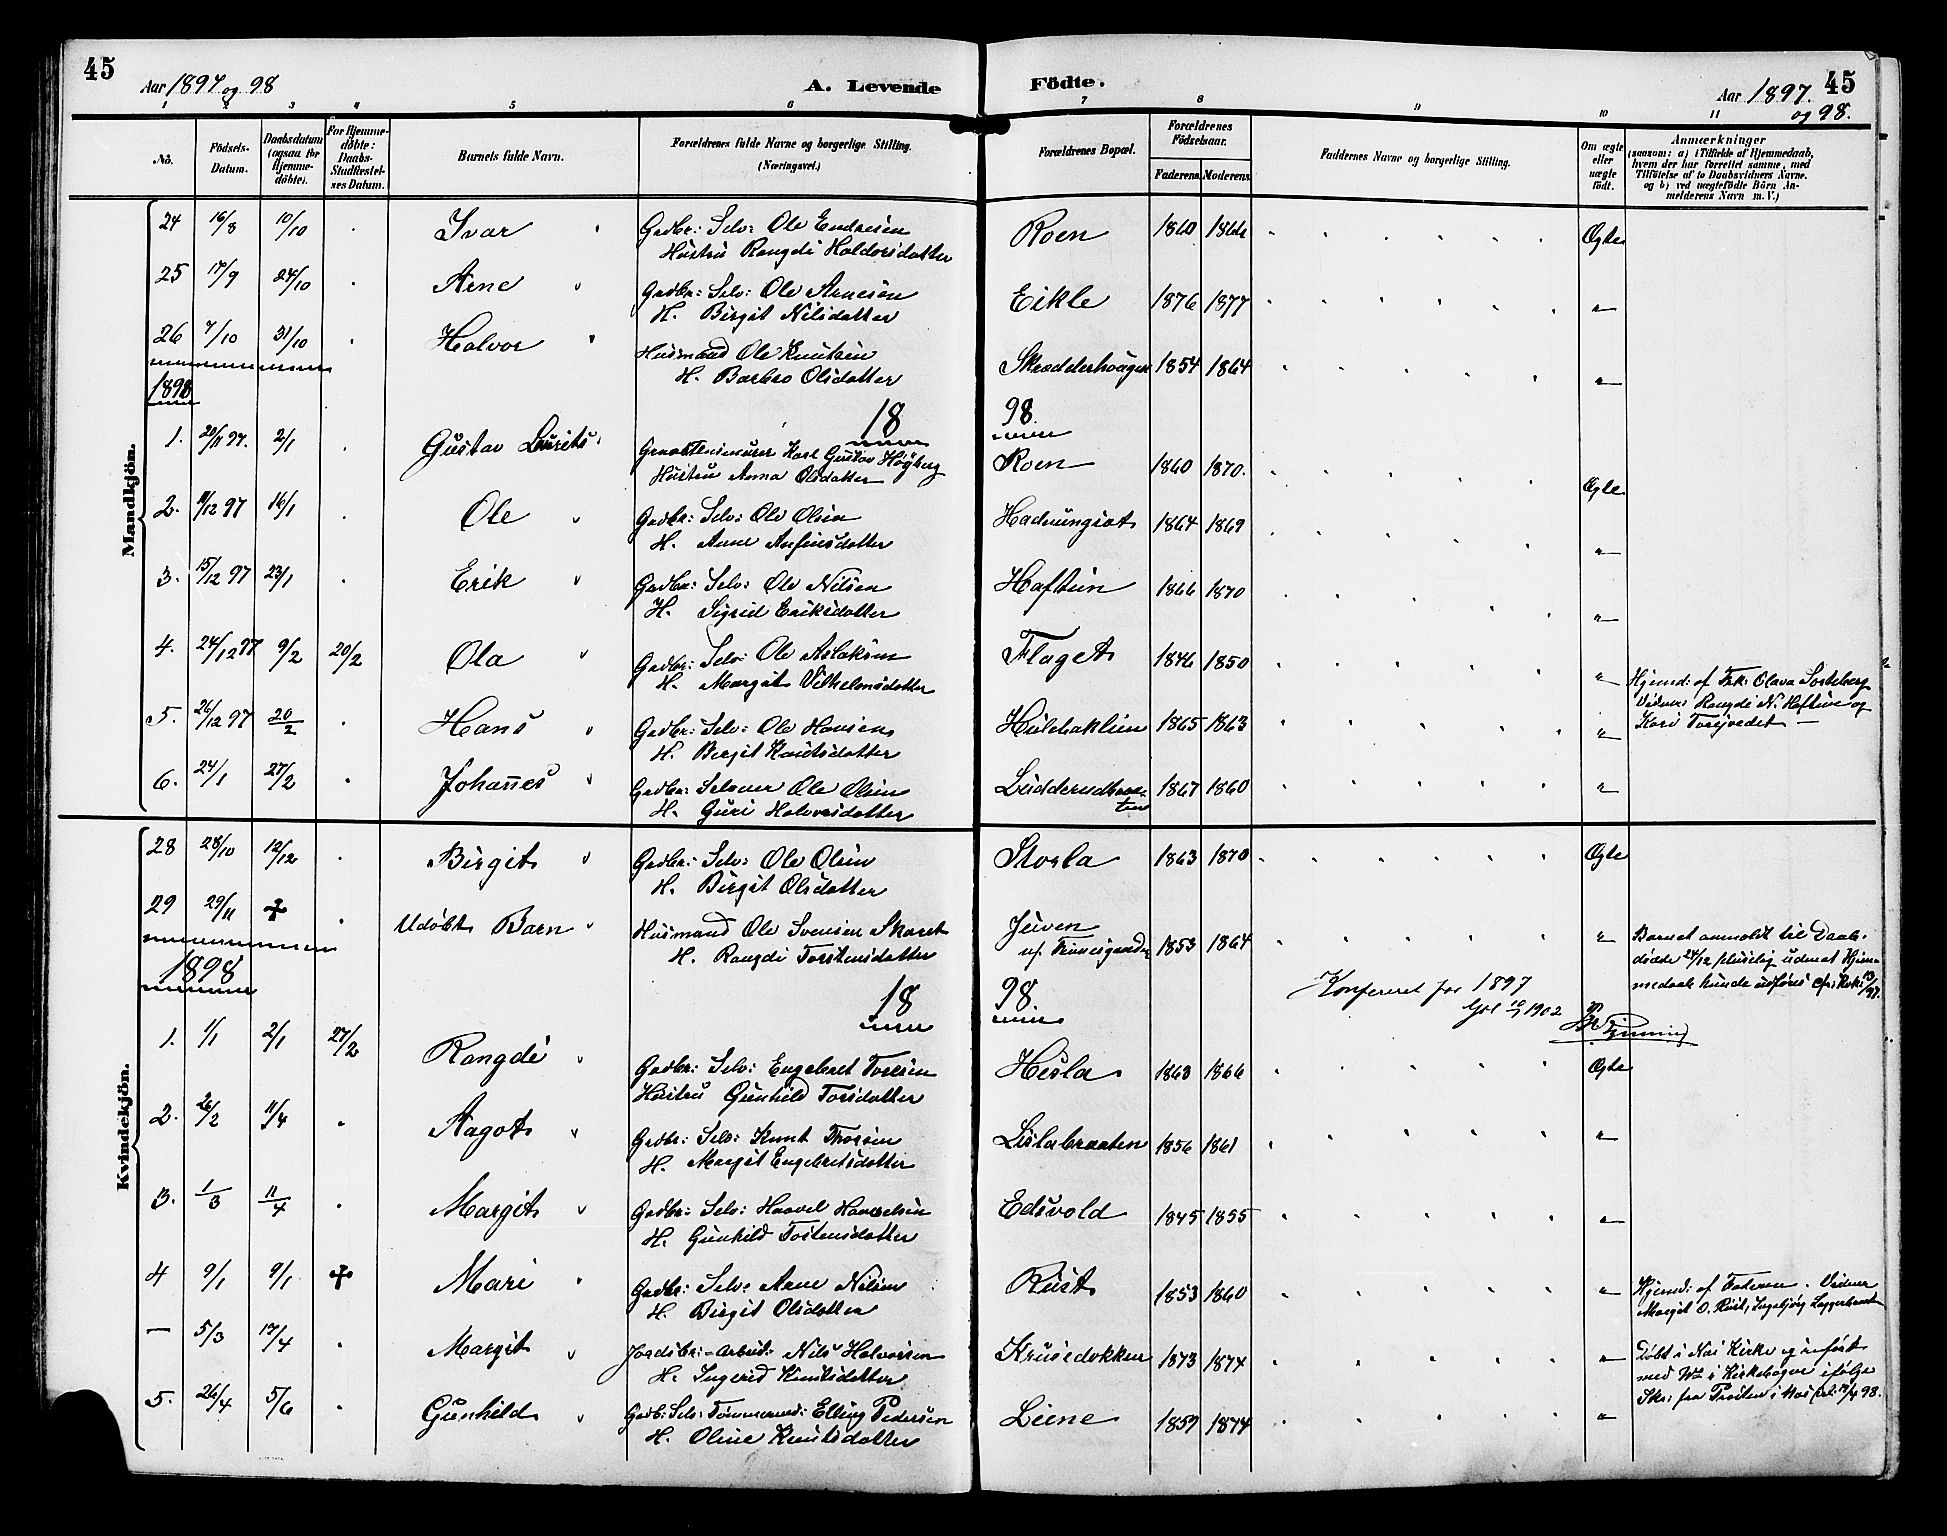 45
Aar 1897 og 98
A. Levende
Födte.
Aar 1897. og 98.
45
1 2 3 4 5 6 7 8 9 10 11
No.
Födsels-Datum.
Daabsdatum (ogsaa for Hjemme-döbte).
For Hjemme-döbte: Daabs-Stadfæstel-ses Datum.
Barnets fulde Navn.
Forældrenes fulde Navne og borgerlige Stilling. (Næringsvei.)
Forældrenes Bopæl.
Forældrenes Födselsaar.
Faderens Moderens
Faddernes Navne og borgerlige Stilling.
Om ægte eller uægte födt.
Anmærkninger (saasom: a) i Tilfælde af Hjemmedaab, hvem der har forrettet samme, med Tilföielse af to Daabsvidners Navne. og b) ved uægtefödte Börn An-melderens Navn m. V.)
Mandkjön.
24 16/8 10/10 Ivar Grdbr: Selv: Ole Endresen Roen 1860 1864 Ægte
Hustru Rangdi Haldorsdatter
25 17/9 24/10 Arne Grdbr: Selv: Ole Arnesen Eikle 1876 1877 "
H. Birgit Nilsdatter
26 7/10 31/10 Halvor Husmand Ole Knutsen Skrædderhaugen 1854 1864 "
H. Barbro Olsdatter
1898
18 98.
1. 20/11 97. 2/1 Gustav Lurits Graastensmurer Karl Gustav Högberg Roen 1860 1870. Ægte
Hustru Anna Olsdatter
2. 9/12 97 16/1 Ole Grdbr: Selv: Ole Olsen 1864 1869 "
H. Anne Anfinsdatter
3. 15/12 97 23/1 Erik Grdbr: Selv: Ole Nilsen Haftun 1866 1870 "
H. Sigrid Eriksdatter
4. 24/12 97 9/2 20/2 Ola Grdbr: Selv: Ole Aslaksen Flaget 1846 1850 " Hjemd: af Frk: Olava
H. Margit Vilhelmsdatter Vidner Rangdi N. Haftun og
5. 26/12 97 20/2 Hans Grdbr: Selv: Ole Hansen 1865 1863 " Kari
H. Birgit Knutsdatter
6. 24/1 27/2 Johannes Grdbr: Selveier Ole Olsen 1867 1860 "
H. Guri Halvorsdatter
Kvindekjön.
28 28/10 12/12 Birgit Grdbr: Selv: Ole Olsen Storla 1863 1870 Ægte
H. Birgit Olsdatter
29 29/11 ✝ Udøbt Barn Husmand Ole Svensen Skaret Juven 1853 1864 " Barnet anmeldt til Daab.
H. Rangdi Torstensdatter døde 24/12 pluselig uden at Hjem-
medaab kunde udføres
1898
18 98.
Konfereret for 1897
Gol 10/ 1902
1. 1/1 2/1 27/2 Rangdi Grdbr: Selv: Engebret Toresen Hesla 1863 1866 Ægte
Hustru Gunhild Torsdatter
2. 26/2 11/4 Aagot Grdbr: Selv: Knut Thorsen Lislabraaten 1856 1861 "
H. Margit Engebretsdatter
3. 1/3 11/4 Margit Grdbr: Selv: Haavel Haavelsen Edsvold 1845 1855 "
H. Gunhild Tostensdatter
4 9/1 9/1 ✝ Mari Grdbr: Selv: Arne Nilsen Rust 1853 1860 " Hjemd: af Faderen. Vidner
H. Birgit Olsdatter Margit O. Rust, Ingebjørg
— 5/3 17/4 Margit Jordsbr:-Arbeid: Nils Halvorsen Krusedokken 1873 1874 " Døbt i Nes Kirke og indført
H. Ingerid Knutsdatter med No i Kirkebogen ifølge
5. 26/4 5/6 Gunhild Grdb: Selv: Tømmermd: Elling Pedersen Liene 1859 1874 " Skr: fra Presten i Nes
H. Oline Knutsdatter